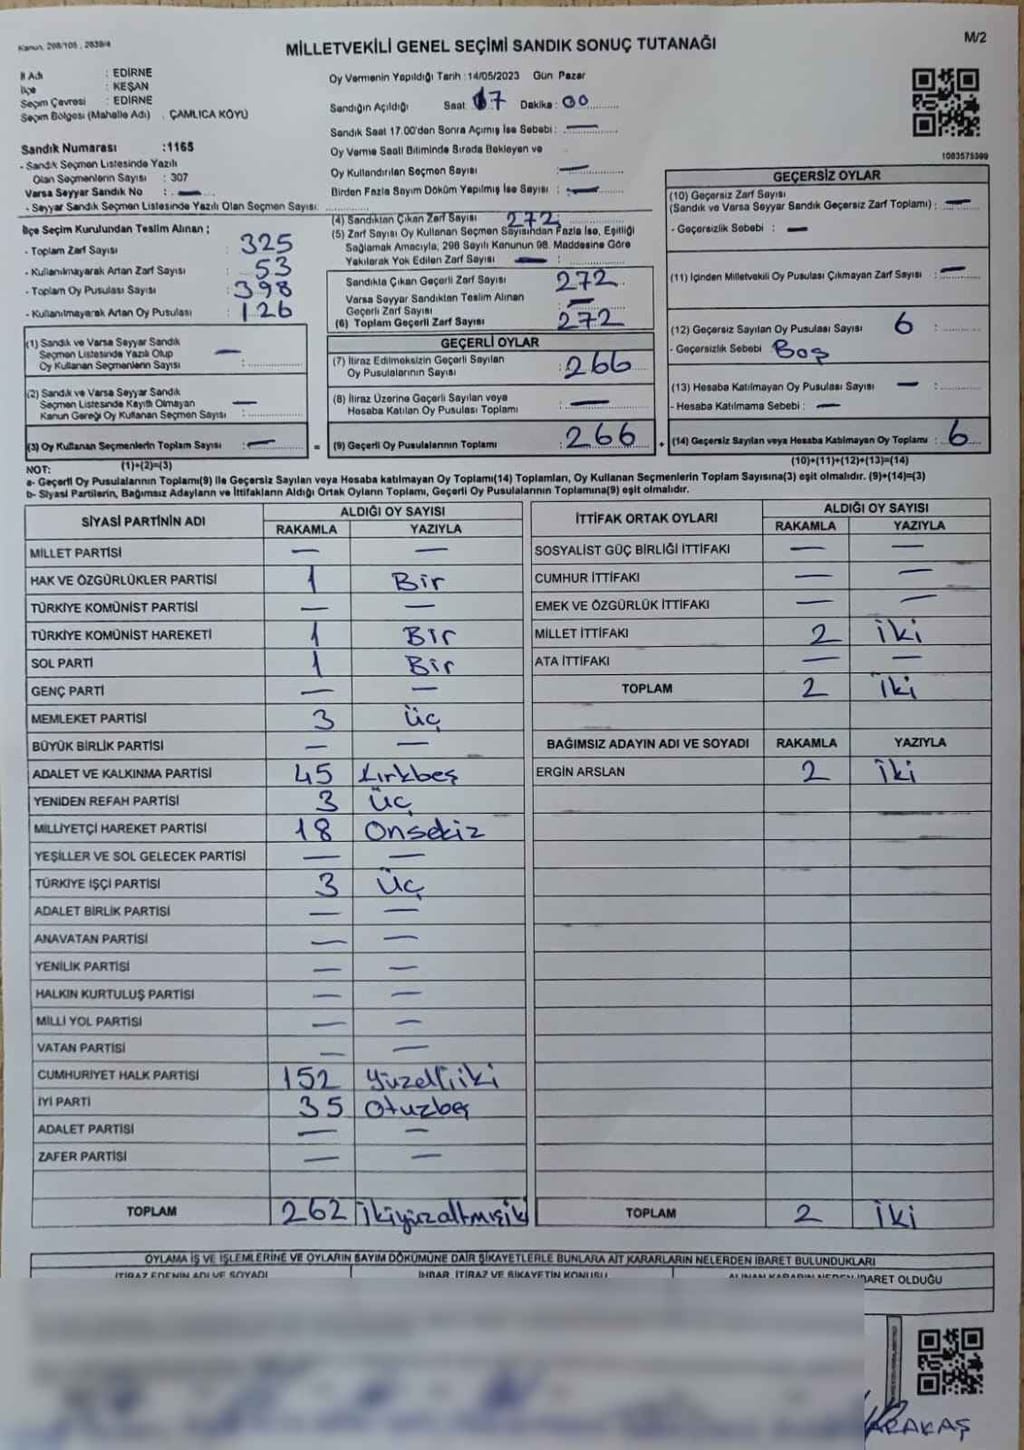 Kanun, 298/105, 2839/4
MİLLETVEKİLİ GENEL SEÇİMİ SANDIK SONUÇ TUTANAĞI
M/2
İl Adı : EDİRNE
İlçe : KEŞAN
Seçim Çevresi : EDİRNE
Seçim Bölgesi (Mahalle Adı) : ÇAMLICA KÖYÜ
Sandık Numarası :1165
- Sandık Seçmen Listesinde Yazılı
Olan Seçmenlerin Sayısı : 307
Varsa Seyyar Sandık No : —
- Seyyar Sandık Seçmen Listesinde Yazılı Olan Seçmen Sayısı:
İlçe Seçim Kurulundan Teslim Alınan ;
- Toplam Zarf Sayısı : 325
- Kullanılmayarak Artan Zarf Sayısı : 53
- Toplam Oy Pusulası Sayısı : 398
- Kullanılmayarak Artan Oy Pusulası : 126
(1) Sandık ve Varsa Seyyar Sandık
Seçmen Listesinde Yazılı Olup
Oy Kullanan Seçmenlerin Sayısı : —
(2) Sandık ve Varsa Seyyar Sandık
Seçmen Listesinde Kayıtlı Olmayan
Kanun Gereği Oy Kullanan Seçmen Sayısı : —
(3) Oy Kullanan Seçmenlerin Toplam Sayısı : —
(1)+(2)=(3)
Oy Vermenin Yapıldığı Tarih :14/05/2023 Gün Pazar
Sandığın Açıldığı Saat 17 Dakika : 00
Sandık Saat 17.00'dan Sonra Açılmış İse Sebebi : —
Oy Verme Saati Bitiminde Sırada Bekleyen ve
Oy Kullandırılan Seçmen Sayısı : —
Birden Fazla Sayım Döküm Yapılmış İse Sayısı : —
(4) Sandıktan Çıkan Zarf Sayısı 272
(5) Zarf Sayısı Oy Kullanan Seçmen Sayısından Fazla İse, Eşitliği
Sağlamak Amacıyla, 298 Sayılı Kanunun 98. Maddesine Göre
Yakılarak Yok Edilen Zarf Sayısı — :
Sandıkta Çıkan Geçerli Zarf Sayısı 272
Varsa Seyyar Sandıktan Teslim Alınan
Geçerli Zarf Sayısı : —
(6) Toplam Geçerli Zarf Sayısı : 272
GEÇERLİ OYLAR
(7) İtiraz Edilmeksizin Geçerli Sayılan
Oy Pusulalarının Sayısı : 266
(8) İtiraz Üzerine Geçerli Sayılan veya
Hesaba Katılan Oy Pusulası Toplamı : —
= (9) Geçerli Oy Pusulalarının Toplamı : 266 +
1083575399
GEÇERSİZ OYLAR
(10) Geçersiz Zarf Sayısı
(Sandık ve Varsa Seyyar Sandık Geçersiz Zarf Toplamı) : —
- Geçersizlik Sebebi : —
(11) İçinden Milletvekili Oy Pusulası Çıkmayan Zarf Sayısı : —
(12) Geçersiz Sayılan Oy Pusulası Sayısı 6 :
- Geçersizlik Sebebi Boş
(13) Hesaba Katılmayan Oy Pusulası Sayısı — :
- Hesaba Katılmama Sebebi : —
(14) Geçersiz Sayılan veya Hesaba Katılmayan Oy Toplamı : 6
(10)+(11)+(12)+(13)=(14)
NOT:
a- Geçerli Oy Pusulalarının Toplamı(9) ile Geçersiz Sayılan veya Hesaba katılmayan Oy Toplamı(14) Toplamları, Oy Kullanan Seçmenlerin Toplam Sayısına(3) eşit olmalıdır. (9)+(14)=(3)
b- Siyasi Partilerin, Bağımsız Adayların ve İttifakların Aldığı Ortak Oyların Toplamı, Geçerli Oy Pusulalarının Toplamına(9) eşit olmalıdır.
SİYASİ PARTİNİN ADI ALDIĞI OY SAYISI
RAKAMLA YAZIYLA
MİLLET PARTİSİ — —
HAK VE ÖZGÜRLÜKLER PARTİSİ 1 Bir
TÜRKİYE KOMÜNİST PARTİSİ — —
TÜRKİYE KOMÜNİST HAREKETİ 1 Bir
SOL PARTİ 1 Bir
GENÇ PARTİ — —
MEMLEKET PARTİSİ 3 Üç
BÜYÜK BİRLİK PARTİSİ — —
ADALET VE KALKINMA PARTİSİ 45 Kırkbeş
YENİDEN REFAH PARTİSİ 3 Üç
MİLLİYETÇİ HAREKET PARTİSİ 18 Onsekiz
YEŞİLLER VE SOL GELECEK PARTİSİ — —
TÜRKİYE İŞÇİ PARTİSİ 3 Üç
ADALET BİRLİK PARTİSİ — —
ANAVATAN PARTİSİ — —
YENİLİK PARTİSİ — —
HALKIN KURTULUŞ PARTİSİ — —
MİLLİ YOL PARTİSİ — —
VATAN PARTİSİ — —
CUMHURİYET HALK PARTİSİ 152 Yüzelliiki
İYİ PARTİ 35 Otuzbeş
ADALET PARTİSİ — —
ZAFER PARTİSİ — —
TOPLAM 262 İkiyüzaltmışiki
İTTİFAK ORTAK OYLARI ALDIĞI OY SAYISI
RAKAMLA YAZIYLA
SOSYALİST GÜÇ BİRLİĞİ İTTİFAKI — —
CUMHUR İTTİFAKI — —
EMEK VE ÖZGÜRLÜK İTTİFAKI — —
MİLLET İTTİFAKI 2 İki
ATA İTTİFAKI — —
TOPLAM 2 İki
BAĞIMSIZ ADAYIN ADI VE SOYADI RAKAMLA YAZIYLA
ERGİN ARSLAN 2 İki
TOPLAM 2 İki
OYLAMA İŞ VE İŞLEMLERİNE VE OYLARIN SAYIM DÖKÜMÜNE DAİR ŞİKAYETLERLE BUNLARA AİT KARARLARIN NELERDEN İBARET BULUNDUKLARI
İTİRAZ EDENİN ADI VE SOYADI İHBAR, İTİRAZ VE ŞİKAYETİN KONUSU ALINAN KARARIN NEDEN İBARET OLDUĞU
KARAKAŞ